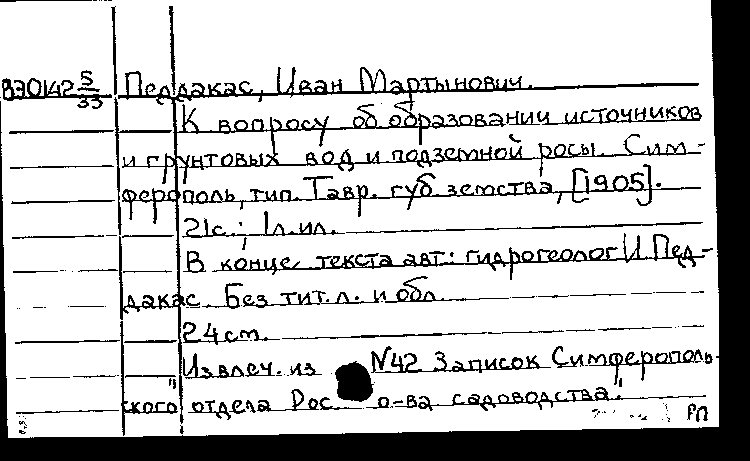 В70142 5/33 Педдакас, Иван Мартынович.
К вопросу об образовании источников
и грунтовых вод и подземной росы. Сим-
ферополь, тип. Тавр. губ земства, [1905].
21с.; 1л.ил.
В конце текста авт.: гидрогеолог И Пед-
дакас. Без тит.л. и обл.
24 см.
Извлеч. из N42 Записок Симферополь-
ского "отдела Рос. о-ва садоводства".
РП